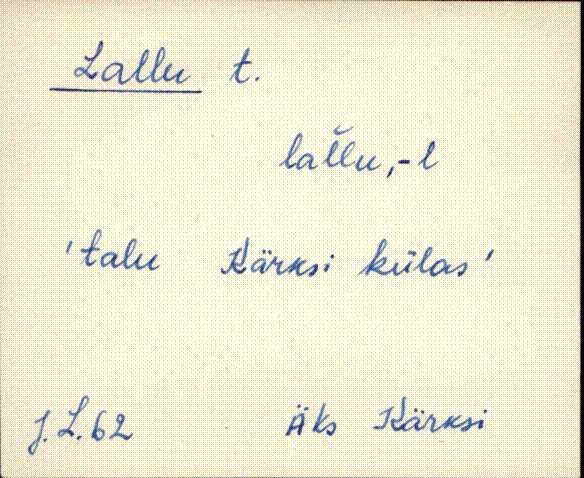 Lallu t.
lal̆lu, -l
'talu Kärksi külas'
J.L.62 Äks Kärksi